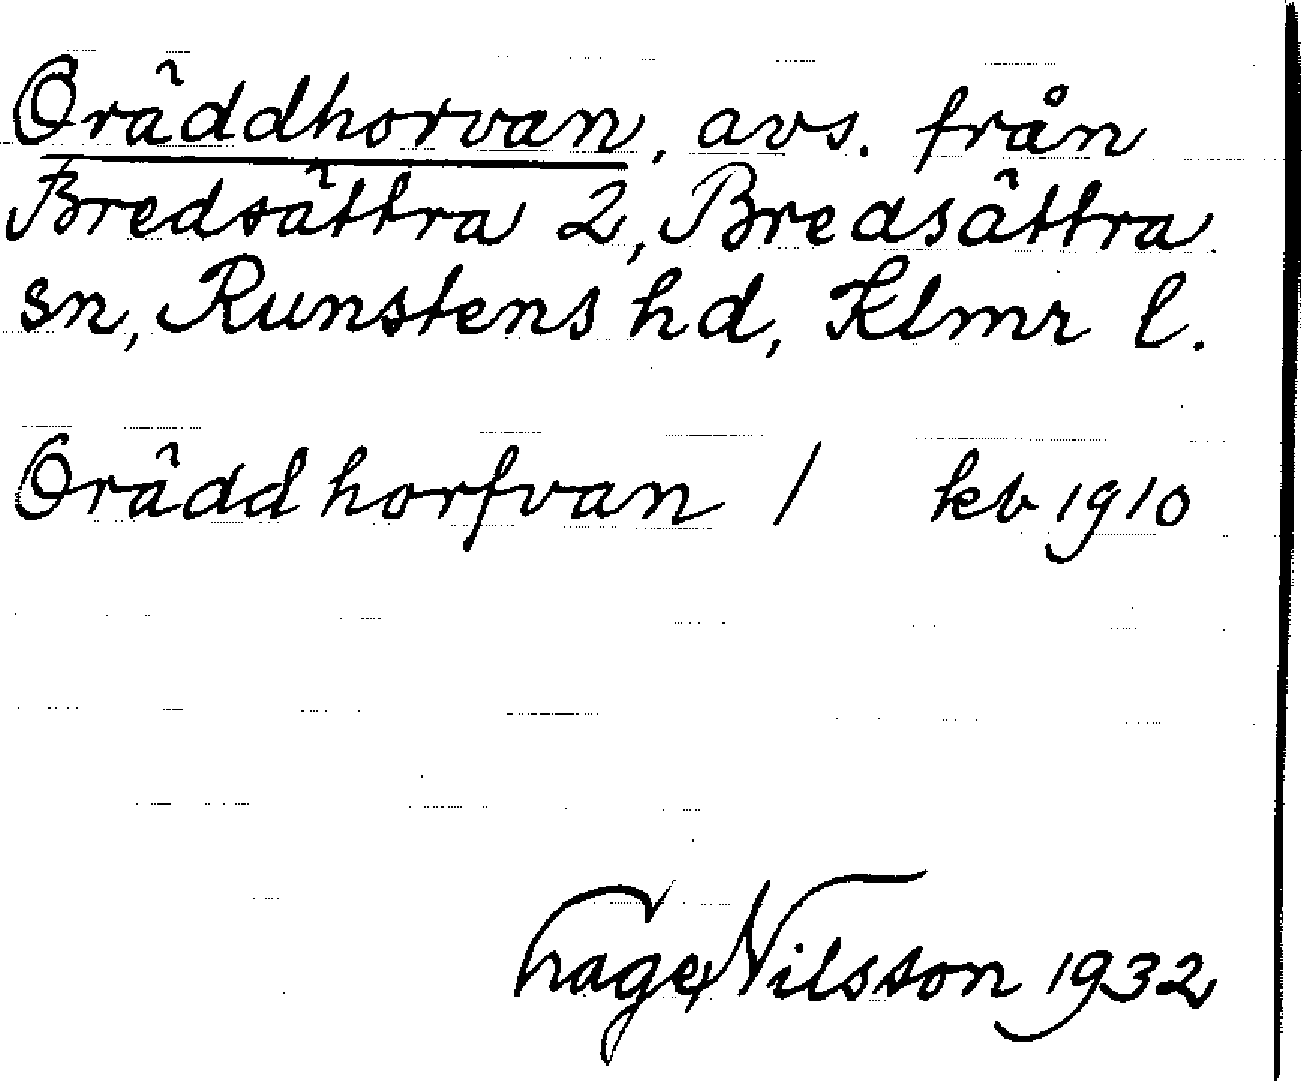 Oräddhorvan, avs. från
Bredsättra 2, Bredsättra
sn, Runstens hd, Klmr l.
Orädd horfvan / kb 1910
Hage Nilsson 1932